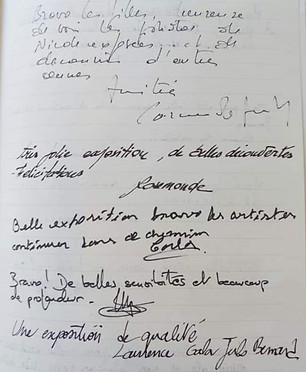 Bravo les filles, heureuse
de voir les toiles de
Nicole exposées et de
découvrir d'autres
Amitié
très jolie exposition, de belles découvertes
félicitations
Rosemonde
Belle exposition bravo les artistes
continuer dans ce chemin
Bravo! De belles sensibilités et beaucoup
de profondeur.
Une exposition de qualité
Laurence